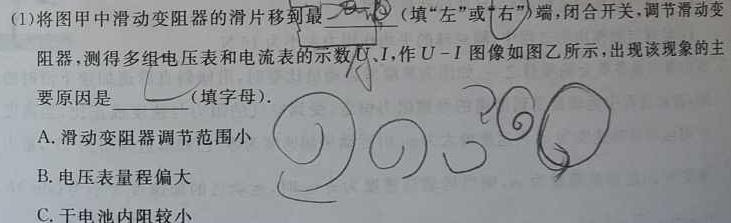 (1)将图甲中滑动变阻器的滑片移到最______(填“左”或“右”)端,闭合开关,调节滑动变
阻器,测得多组电压表和电流表的示数U、I,作U-I图像如图乙所示,出现该现象的主
要原因是______(填字母).
A.滑动变阻器调节范围小
B.电压表量程偏大
C.干电池内阻较小